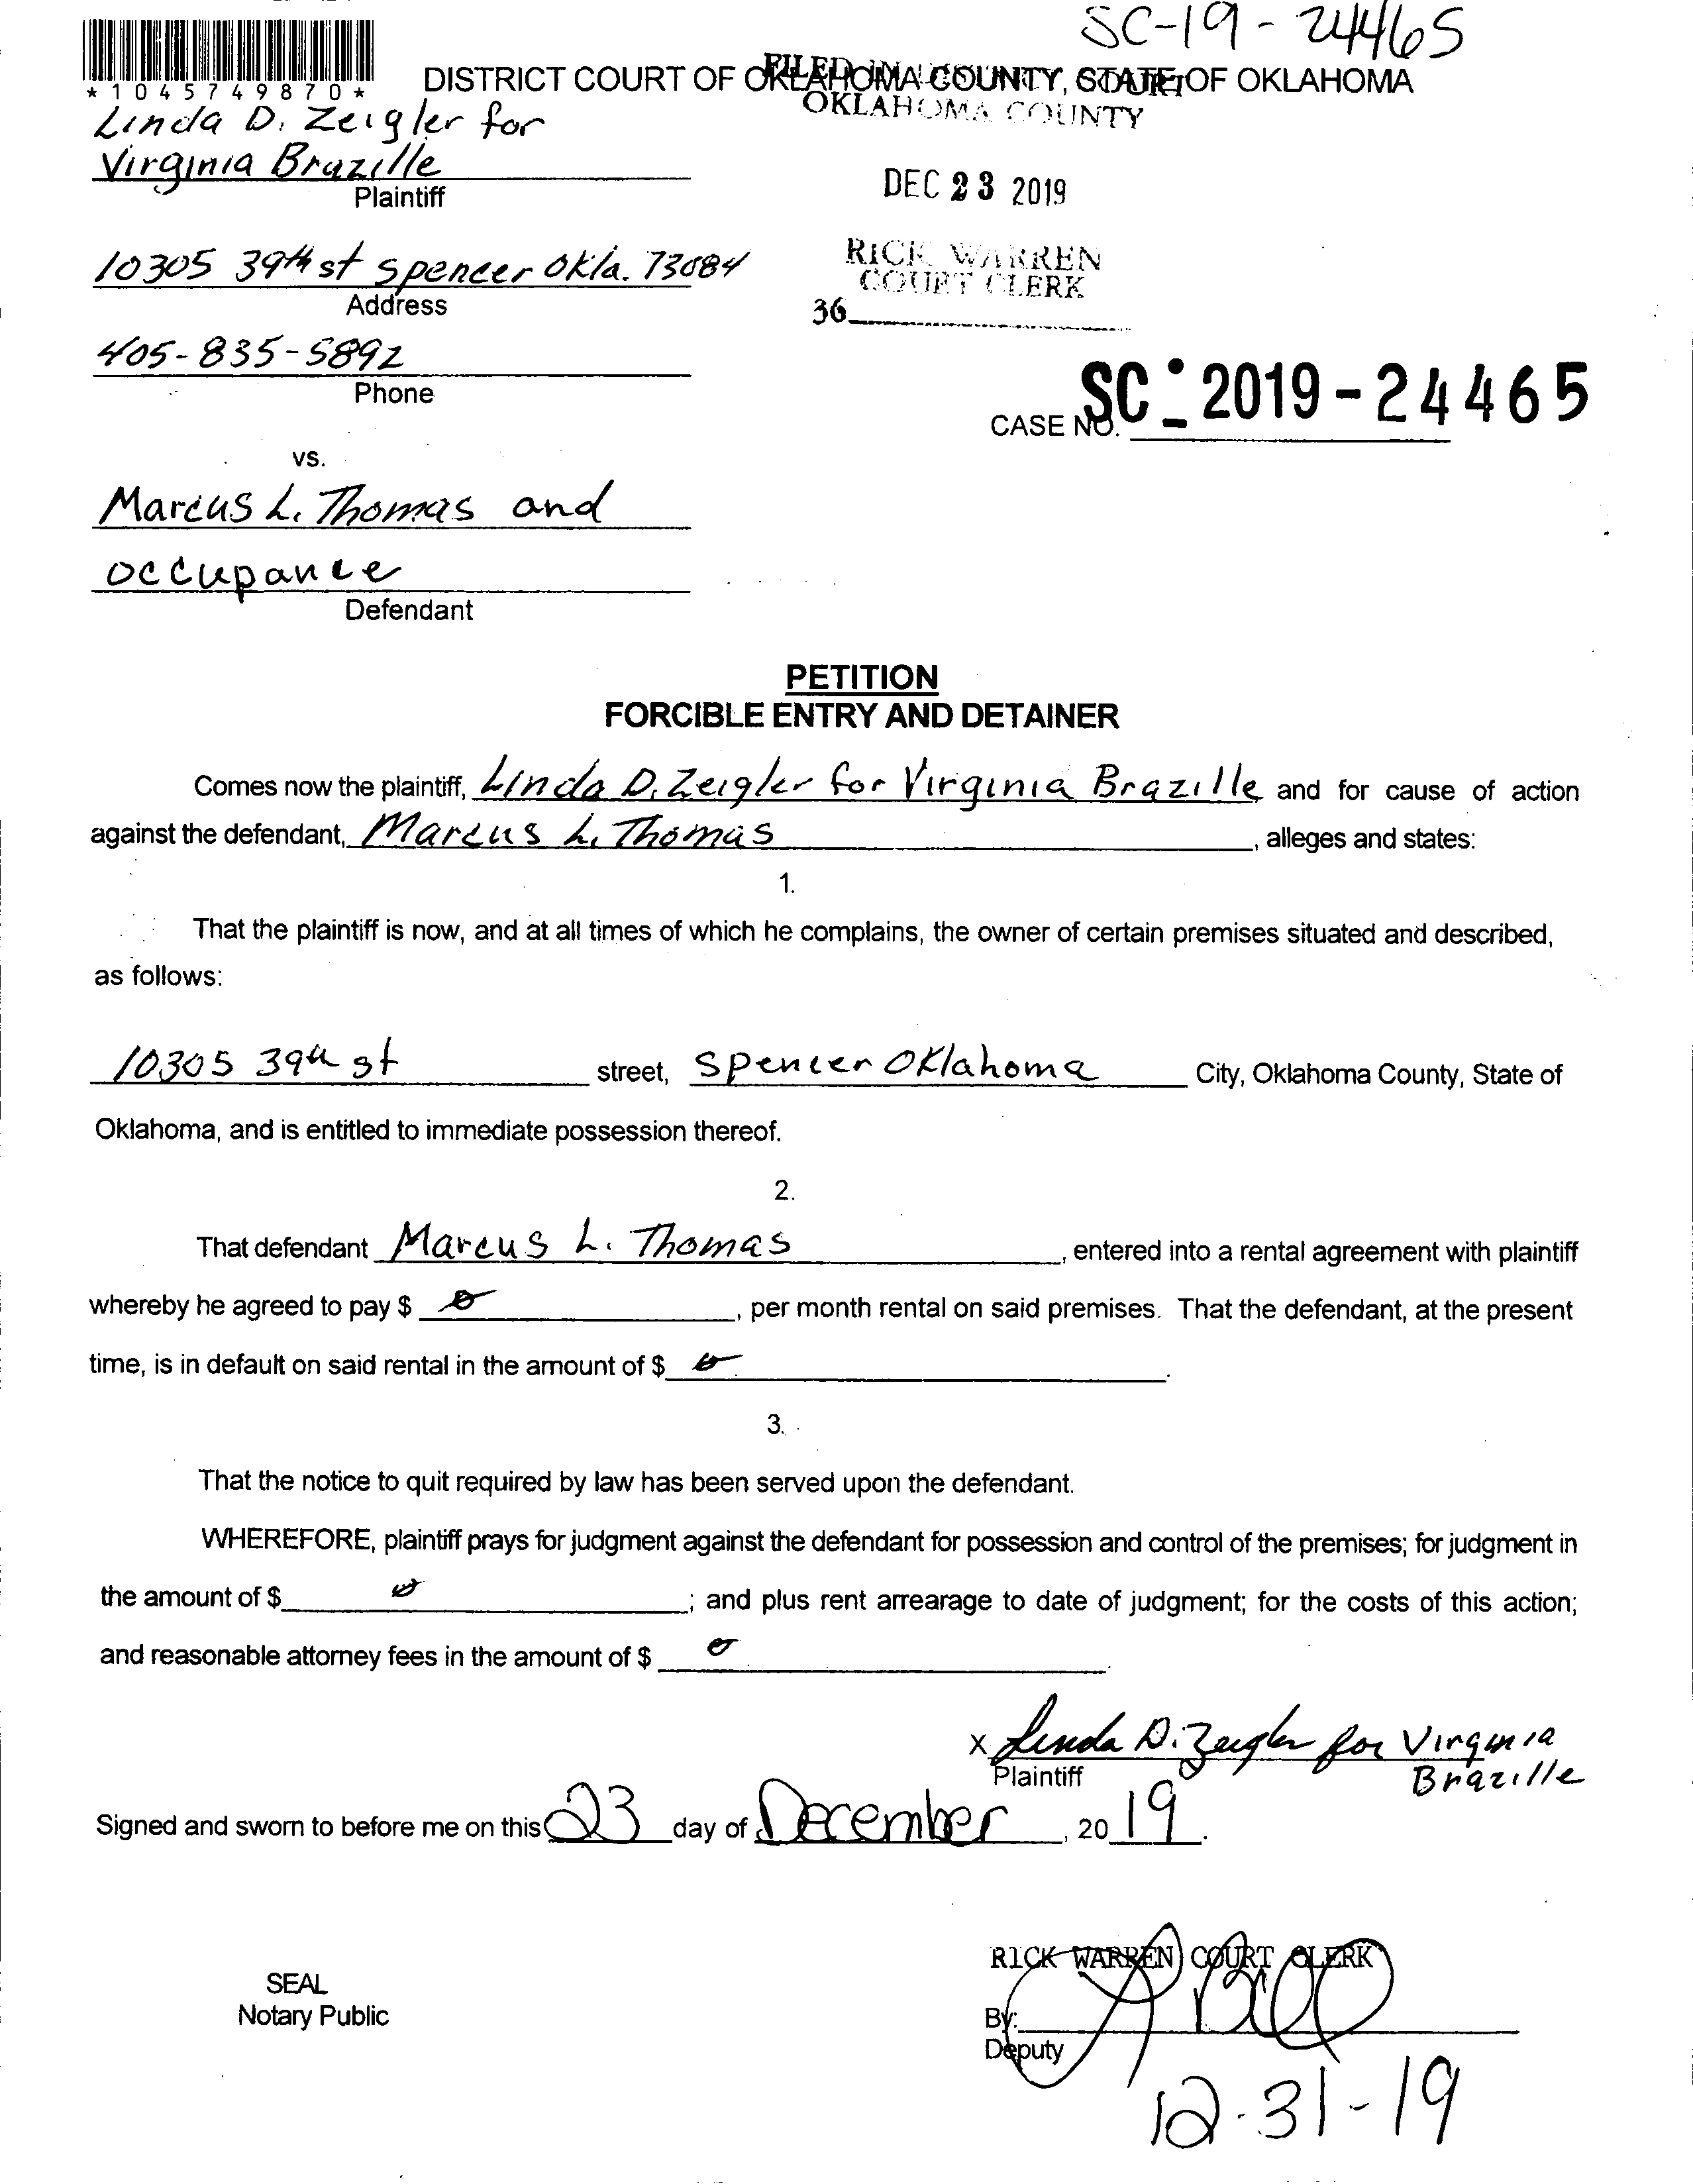 SC-19-24465
*1045749870*
DISTRICT COURT OF OKLAHOMA COUNTY, STATE OF OKLAHOMA
FILED IN DISTRICT COURT
OKLAHOMA COUNTY
Linda D. Zeigler for
Virginia Brazille
Plaintiff
DEC 23 2019
10305 39th st Spencer Okla. 73084
Address
RICK WARREN
COURT CLERK
36
405-835-5892
Phone
CASE NO. SC-2019-24465
vs.
Marcus L. Thomas and
occupance
Defendant
PETITION
FORCIBLE ENTRY AND DETAINER
Comes now the plaintiff, Linda D. Zeigler for Virginia Brazille and for cause of action
against the defendant, Marcus L. Thomas, alleges and states:
1.
That the plaintiff is now, and at all times of which he complains, the owner of certain premises situated and described,
as follows:
10305 39th st street, Spencer Oklahoma City, Oklahoma County, State of
Oklahoma, and is entitled to immediate possession thereof.
2.
That defendant Marcus L. Thomas, entered into a rental agreement with plaintiff
whereby he agreed to pay $ 0, per month rental on said premises. That the defendant, at the present
time, is in default on said rental in the amount of $ 0.
3.
That the notice to quit required by law has been served upon the defendant.
WHEREFORE, plaintiff prays for judgment against the defendant for possession and control of the premises; for judgment in
the amount of $ 0; and plus rent arrearage to date of judgment; for the costs of this action;
and reasonable attorney fees in the amount of $ 0.
X Linda D. Zeigler for Virginia
Plaintiff Brazille
Signed and sworn to before me on this 23 day of December, 2019.
RICK WARREN COURT CLERK
SEAL
Notary Public
By:
Deputy
12-31-19